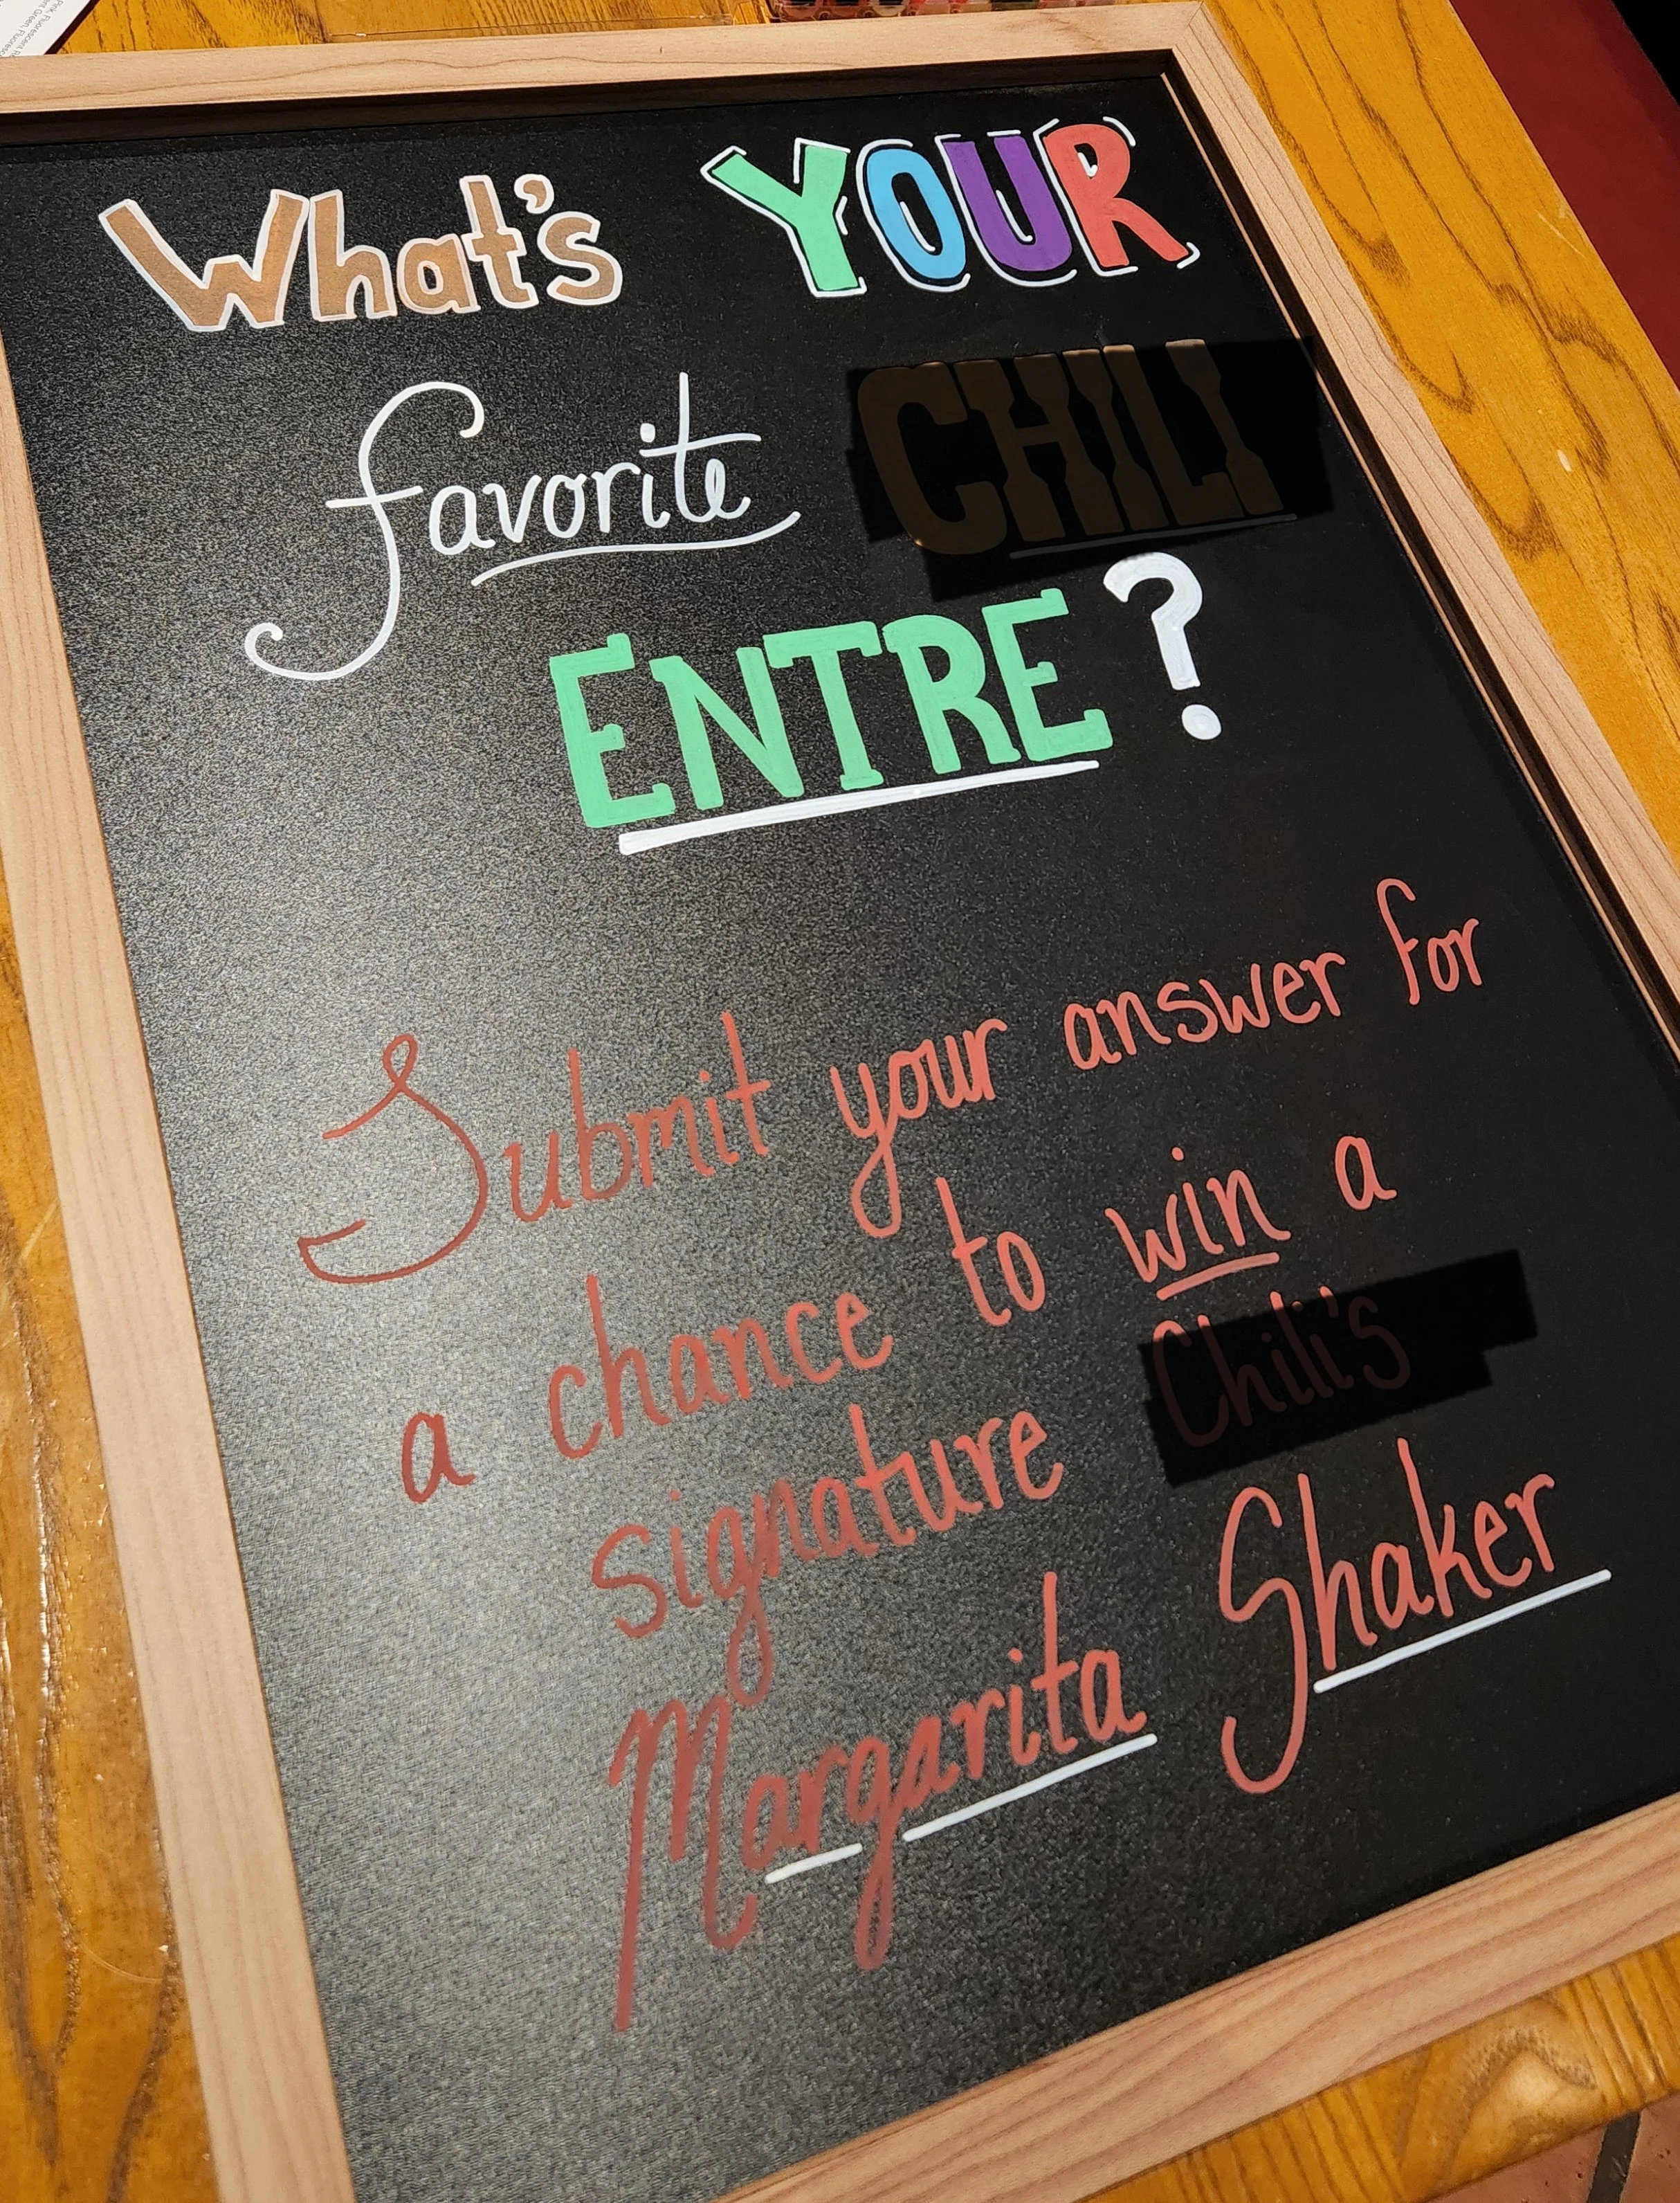 What's YOUR
favorite CHILI
ENTRE?
Submit your answer for
a chance to win a
signature Chili's
Margarita Shaker